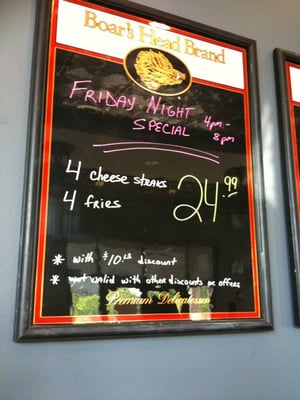 Boar's Head Brand
FRIDAY NIGHT
SPECIAL
4pm -
8pm
4 cheese steaks
4 fries
24.99
* with $10.23 discount
* not valid with other discounts or offers
Premium Delicatessen